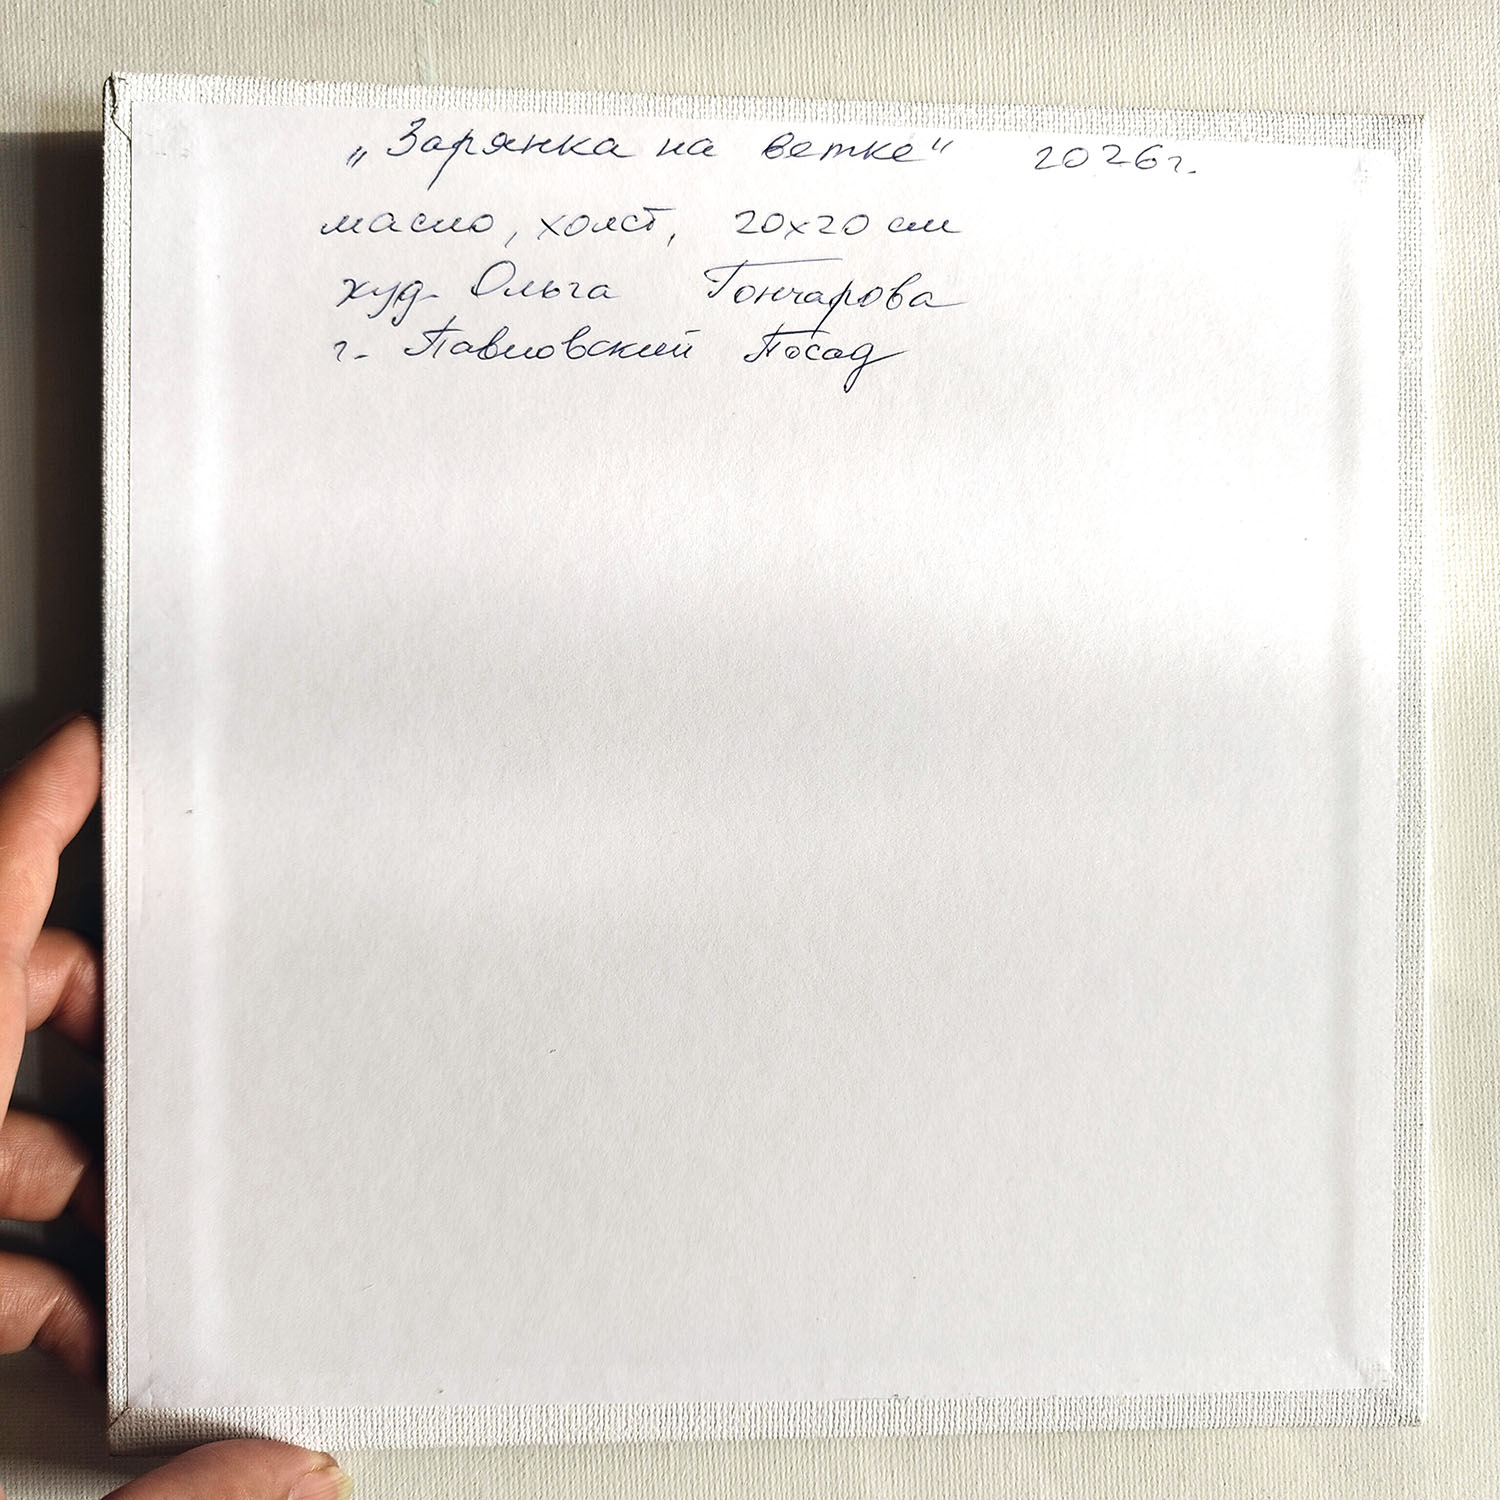 „Зарянка на ветке" 2026г.
масло, холст, 20х20 см
худ. Ольга Гончарова
г. Павловский Посад